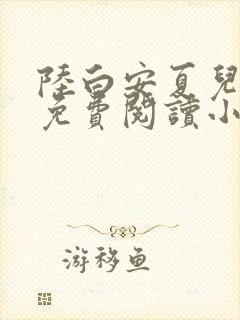 陸白安夏兒
免費閱讀小
游移鱼